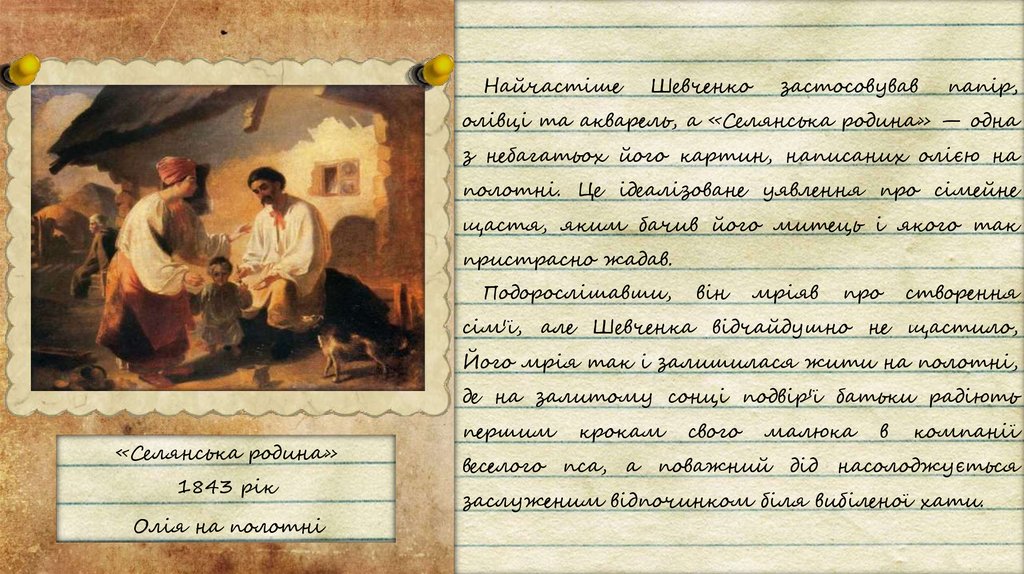 Найчастіше Шевченко застосовував папір,
олівці та акварель, а «Селянська родина» — одна
з небагатьох його картин, написаних олією на
полотні. Це ідеалізоване уявлення про сімейне
щастя, яким бачив його митець і якого так
пристрасно жадав.
Подорослішавши, він мріяв про створення
сім'ї, але Шевченка відчайдушно не щастило,
Його мрія так і залишилася жити на полотні,
де на залитому сонці подвір'ї батьки радіють
першим крокам свого малюка в компанії
веселого пса, а поважний дід насолоджується
заслуженим відпочинком біля вибіленої хати.
«Селянська родина»
1843 рік
Олія на полотні